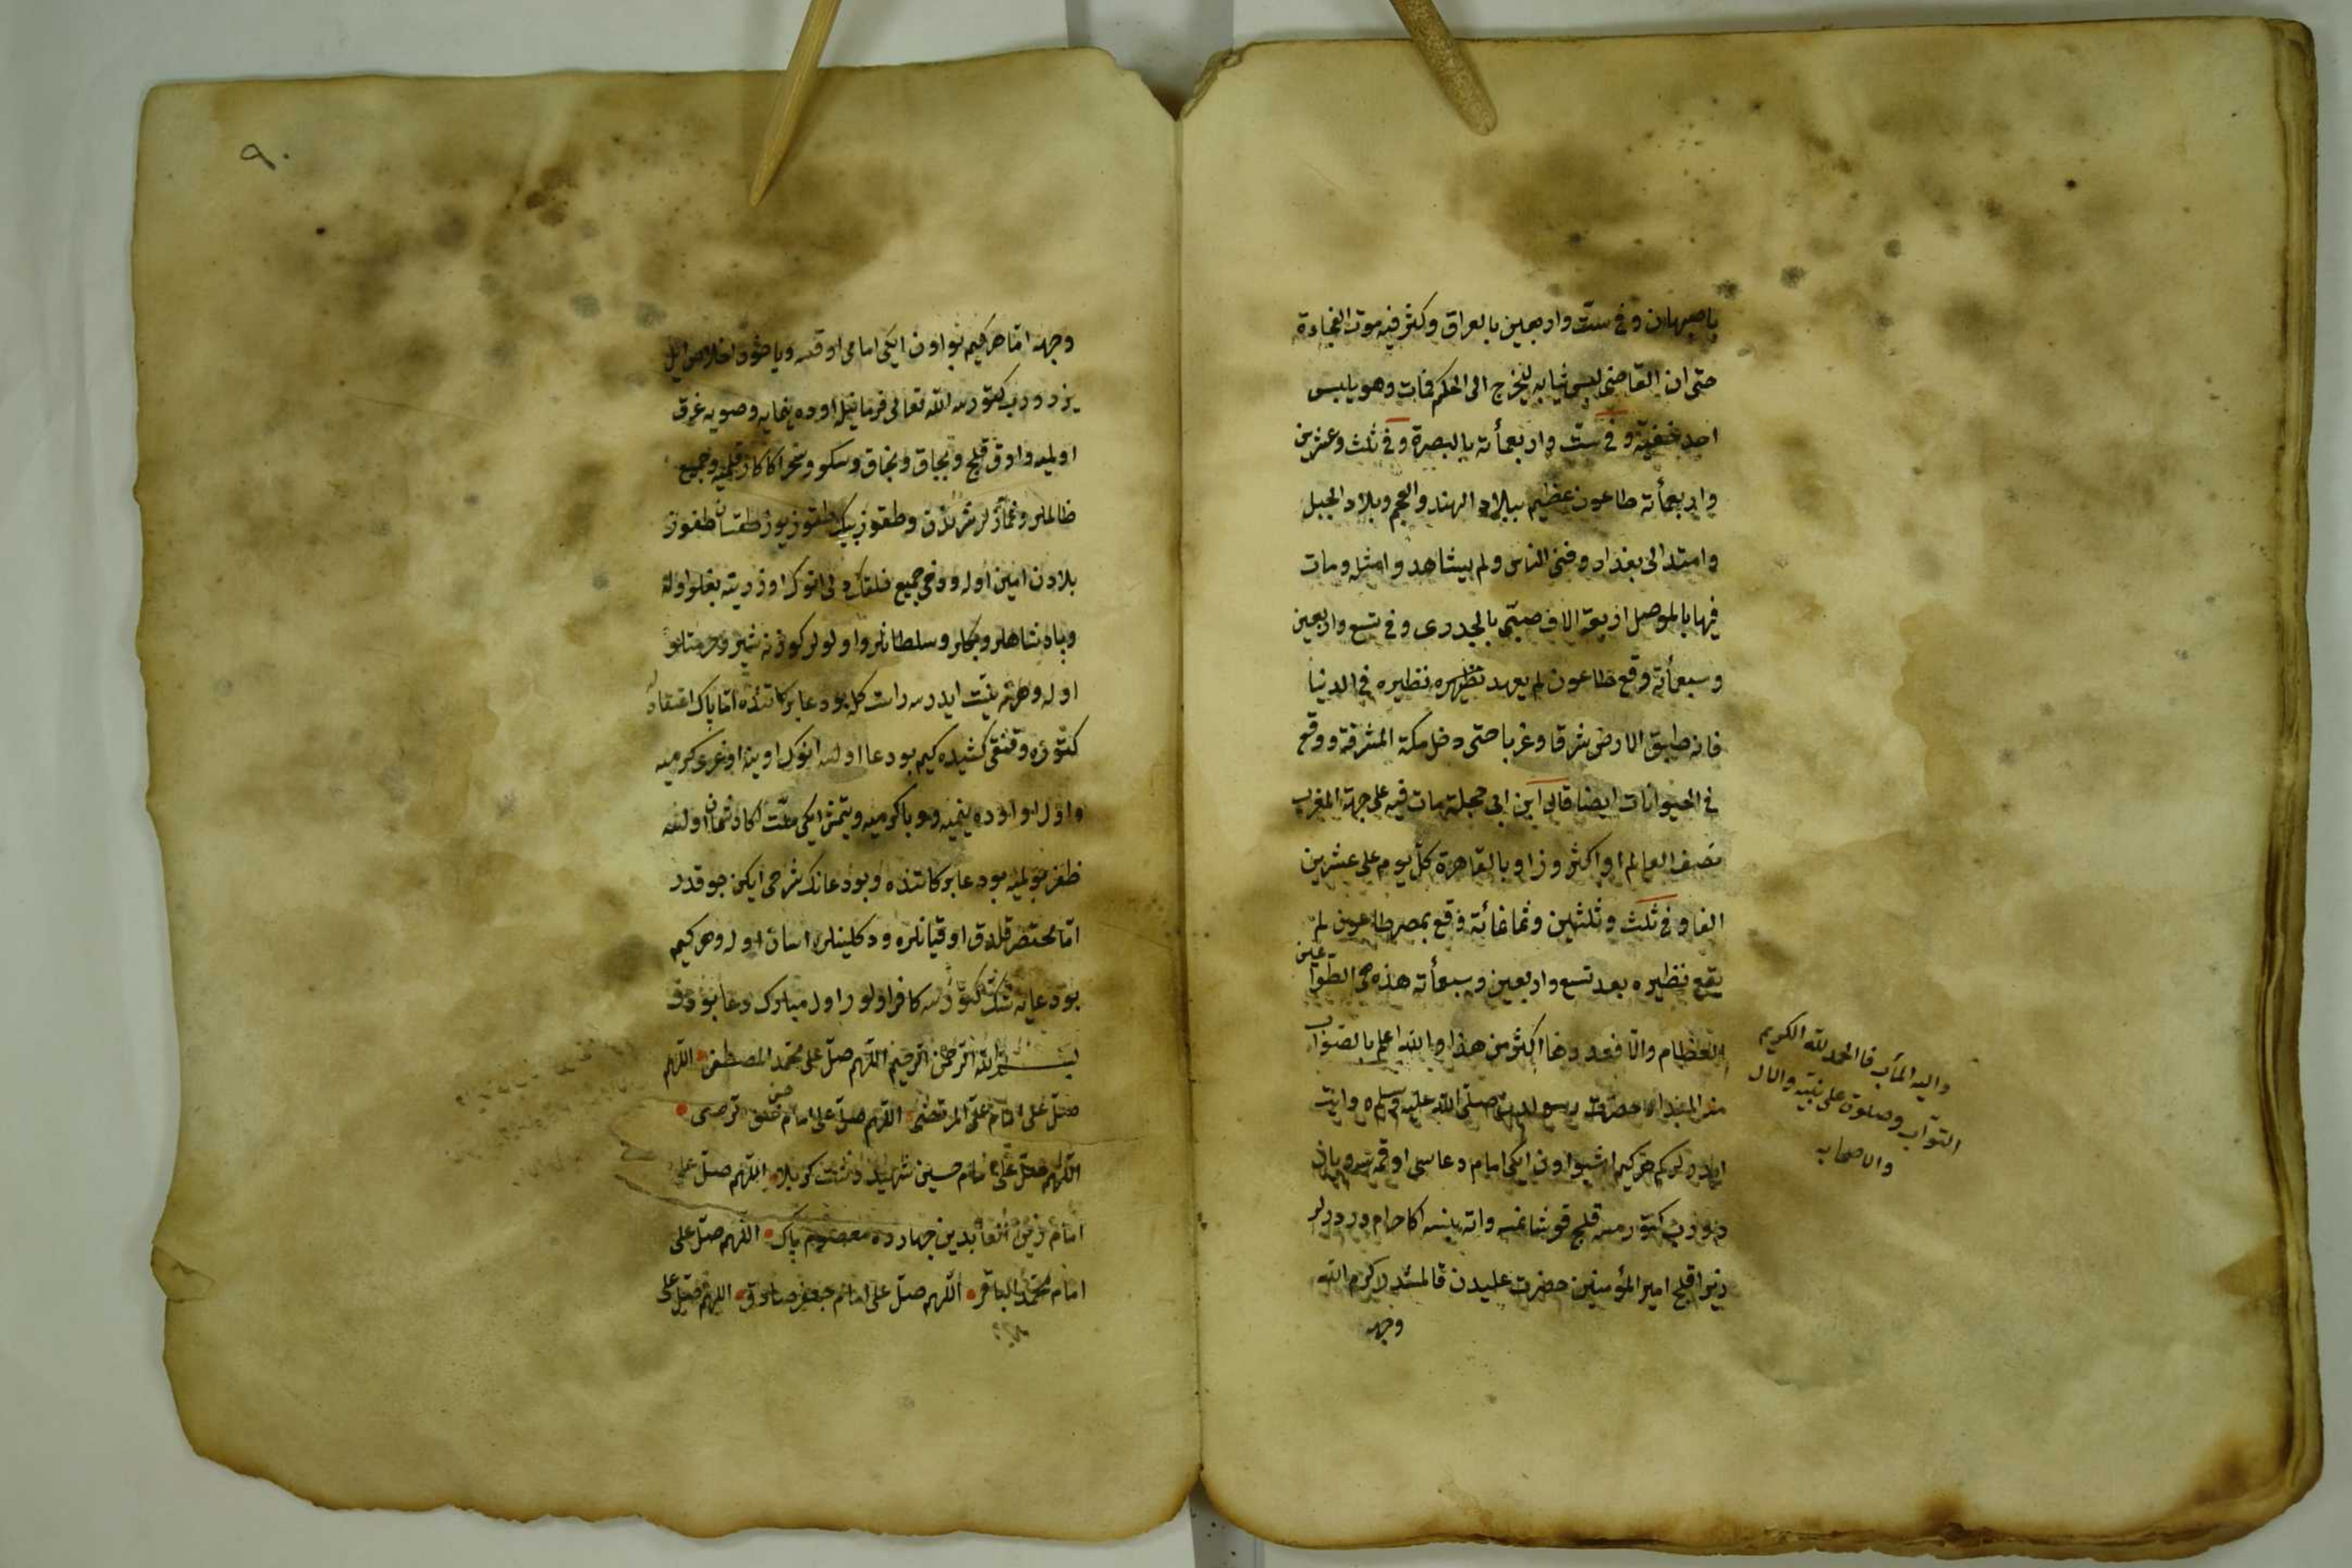 باصبهان وفي ست واربعين بالعراق وكثر فيه موت الفجاءة
حتى ان القاضي لبس ثيابه ليخرج الى الحكم فمات وهو يلبس
احد خفيه وفي ست واربعمأته بالبصرة وفي ثلث وعشرين
واربعمأته طاعون عظيم ببلاد الهند والعجم وبلاد الجبل
وامتد الى بغداد وفنى الناس ولم يشاهدوا مثله ومات
فيها بالموصل اربعة الاف صبي بالجدرى وفي تسع واربعين
وسبعمأته وقع طاعون لم يعهد نظيره في الدنيا
فانه طبق الارض شرقا وغربا حتى دخل مكة المشرفة ووقع
في الحيوانات ايضا قال ابن ابى حجلة مات فيه على جهة المغرب
نصف العالم او اكثر وزاد بالقاهرة كل يوم على عشرين
الفا وفي ثلث وثلثين وثمانمائة وقع بمصر طاعون لم
يقع نظيره بعد تسع واربعين وسبعمأته هذه هى الطواعين
العظام والا فعددها اكثر من هذا والله اعلم بالصواب
واليه المآب فا الحمد لله الكريم
التواب وصلوة على نبيه والال
والاصحاب
حضرت رسولدن صلى الله عليه وسلم روايت
ايدرلر كم هركيم اشبو اون ايكى امام دعاسى اوقسه ويازن
كتورسه قلج قوشانمسه واته بينسه اكا حرام دردرلر
زيرا قلج امير المؤمنين حضرت عليدن قالمشدر كرم الله
وجهه
٩٠
وجهه اما هركيم بو اون ايكى امامى اوقسه ويا اخلاص ايله
يزدروب كتورسه الله تعالى فرمانيله اوده ينمايه وصويه غرق
اولميه واوق قلج وبچاق وسكو وخنجر اكا كار قلميه وجميع
ظالملر وغمازلر شرندن وطقوز بيك طقوز يوز طقسان طقوز
بلادن امين اوله ودخى جميع خلقك دلى انوك اوزرينه بغلو اوله
وپادشاهلر وبكلر وسلطانلر واولولر كوزنه شيرين وحرمتلو
اوله وهر نه نيت ايدرسه راست كله بو دعا بركاتنده اما پاك اعتقادله
كتوره وقنقى كشيده كيم بو دعا اولسه انوك اوينه اوغرى كرميه
واول او اوده ينميه وبا كرميه ويتمش ايكى ملت اكا دشمان اولسه
ظفر بولميه بو دعا بركاتنده وبو دعانك شرحى ايكن چوقدر
اما مختصر قلدق اوقيانلره ودكلينلره اسان اوله وهر كيم
بو دعايه شك كتورسه كافر اولور اول مبارك دعا بودر
بسم الله الرحمن الرحيم اللهم صل على محمد المصطفى اللهم
صل على امام على المرتضى اللهم صل على امام حسن
اللهم صل على امام حسين شهيد دشت كربلا اللهم صل على
امام زين العابدين چهارده معصوم پاك اللهم صل على
امام محمد الباقر اللهم صل على امام جعفر صادق اللهم صل على